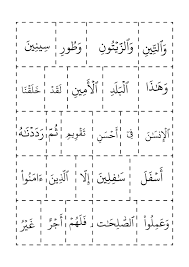 وَٱلتِّينِ وَٱلزَّيْتُونِ وَطُورِ سِينِينَ
وَهَٰذَا ٱلْبَلَدِ ٱلْأَمِينِ لَقَدْ خَلَقْنَا
ٱلْإِنسَٰنَ فِىٓ أَحْسَنِ تَقْوِيمٍ ثُمَّ رَدَدْنَٰهُ
أَسْفَلَ سَٰفِلِينَ إِلَّا ٱلَّذِينَ ءَامَنُوا۟
وَعَمِلُوا۟ ٱلصَّٰلِحَٰتِ فَلَهُمْ أَجْرٌ غَيْرُ